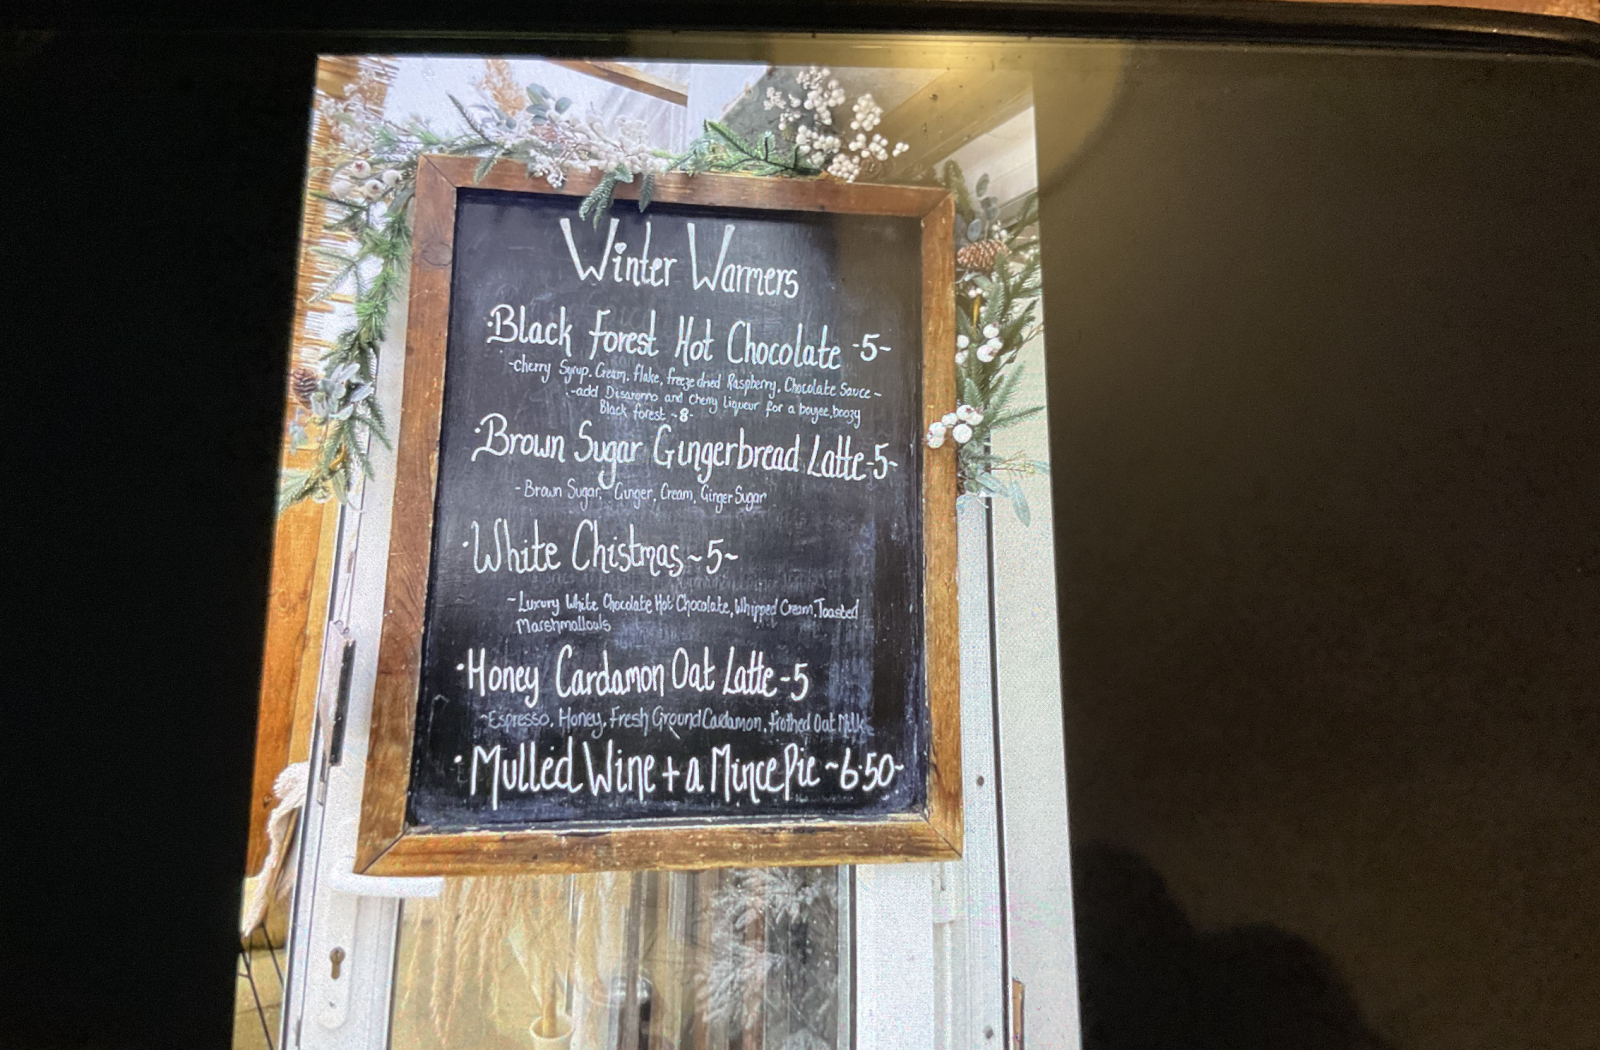 Winter Warmers
·Black Forest Hot Chocolate -5-
~cherry Syrup, Cream, flake, freeze dried Raspberry, Chocolate Sauce~
-add Disaronno and cherry liqueur for a boujee, boozy
Black forest -8-
·Brown Sugar Gingerbread Latte-5-
-Brown Sugar, Ginger, Cream, Ginger Sugar
·White Chistmas~5~
~Luxury White Chocolate Hot Chocolate, Whipped Cream, Toasted
Marshmallows
·Honey Cardamon Oat Latte-5
~Espresso, Honey, Fresh Ground Cardamon, frothed Oat Milk~
·Mulled Wine + a Mince Pie ~6·50~